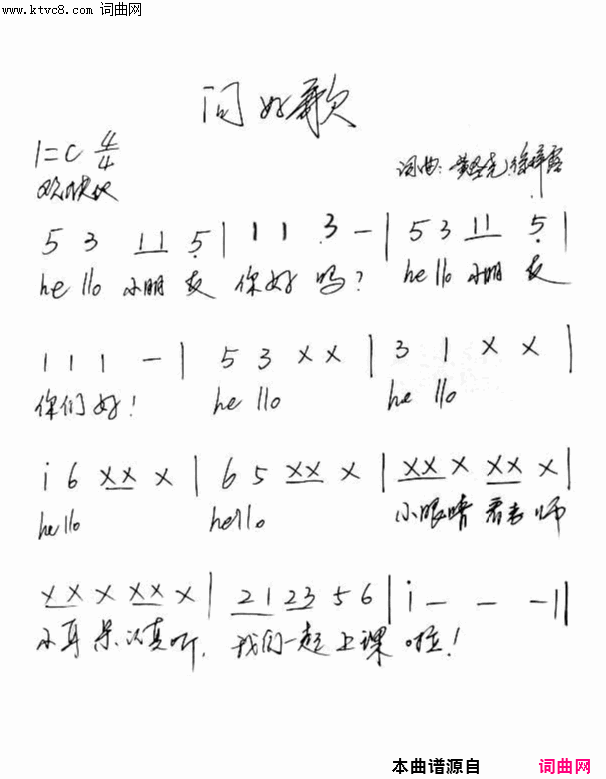 www.ktvc8.com 词曲网
问好歌
1=C 4/4
词曲:
欢快地
5 3 1 1 5 | 1 1 3 - | 5 3 1 1 5 |
hello 小朋友 你好吗? hello 小朋友
1 1 1 - | 5 3 x x | 3 1 x x |
你们好! hello hello
i 6 xx x | 6 5 xx x | xx x xx x |
hello hello 小眼睛 看老师
xx x xx x | 2 1 2 3 5 6 | i - - - ||
小耳朵认真听, 我们一起上课 啦!
本曲谱源自 词曲网